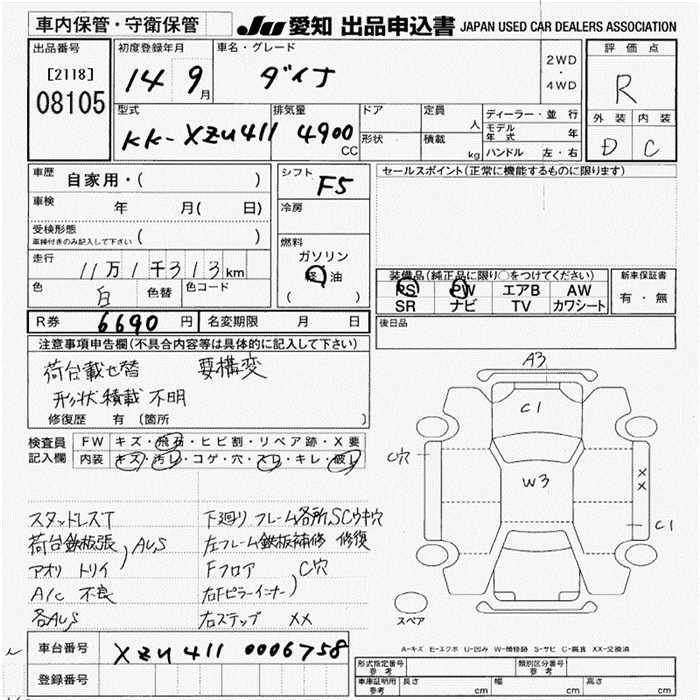 車内保管・守衛保管 JU 愛知 出品申込書 JAPAN USED CAR DEALERS ASSOCIATION
出品番号 初度登録年月 車名・グレード 評価点
[2118] 14 9月 ダイナ 2WD・4WD R
08105
型式 排気量 ドア 定員 人 ディーラー・並行 外装 内装
KK-XZU411 4900 CC 形状 積載 kg モデル年式 年 D C
ハンドル 左・右
車歴 自家用・( ) シフト F5 セールスポイント(正常に機能するものに限ります)
車検 年 月( 日) 冷房
受検形態 ( )
車検付きのみ記入して下さい
燃料
ガソリン
軽油
( )
走行 11万1千313km
装備品(純正品に限り○をつけてください) 新車保証書
色 白 色替 色コード
PS PW エアB AW 有・無
SR ナビ TV カワシート
R券 6690円 名変期限 月 日 後日品
注意事項申告欄(不具合内容等は具体的に記入して下さい)
荷台載せ替 要構変
形状積載不明
修復歴 有 [箇所 ]
検査員記入欄 FW キズ・飛石・ヒビ割・リペア跡・X要
内装 キズ・汚レ・コゲ・穴・スレ・キレ・破レ
スタッドレスT 下廻り フレーム各所SCウキ穴
荷台鉄板張 左フレーム鉄板補修 修復
アオリ トリイ AUS Fフロア C穴
A/C 不良 右Fピラーインナー
各AUS 右ステップ XX
A3
C1
C穴
W3
XX
C1
スペア
A-キズ E-エクボ U-凹み W-補修跡 S-サビ C-腐食 XX-交換済
車台番号 XZU411 0006758
登録番号
形式指定番号 参考 類別区分番号 参考
車庫証明用 参考 長さ cm 幅 cm 高さ cm